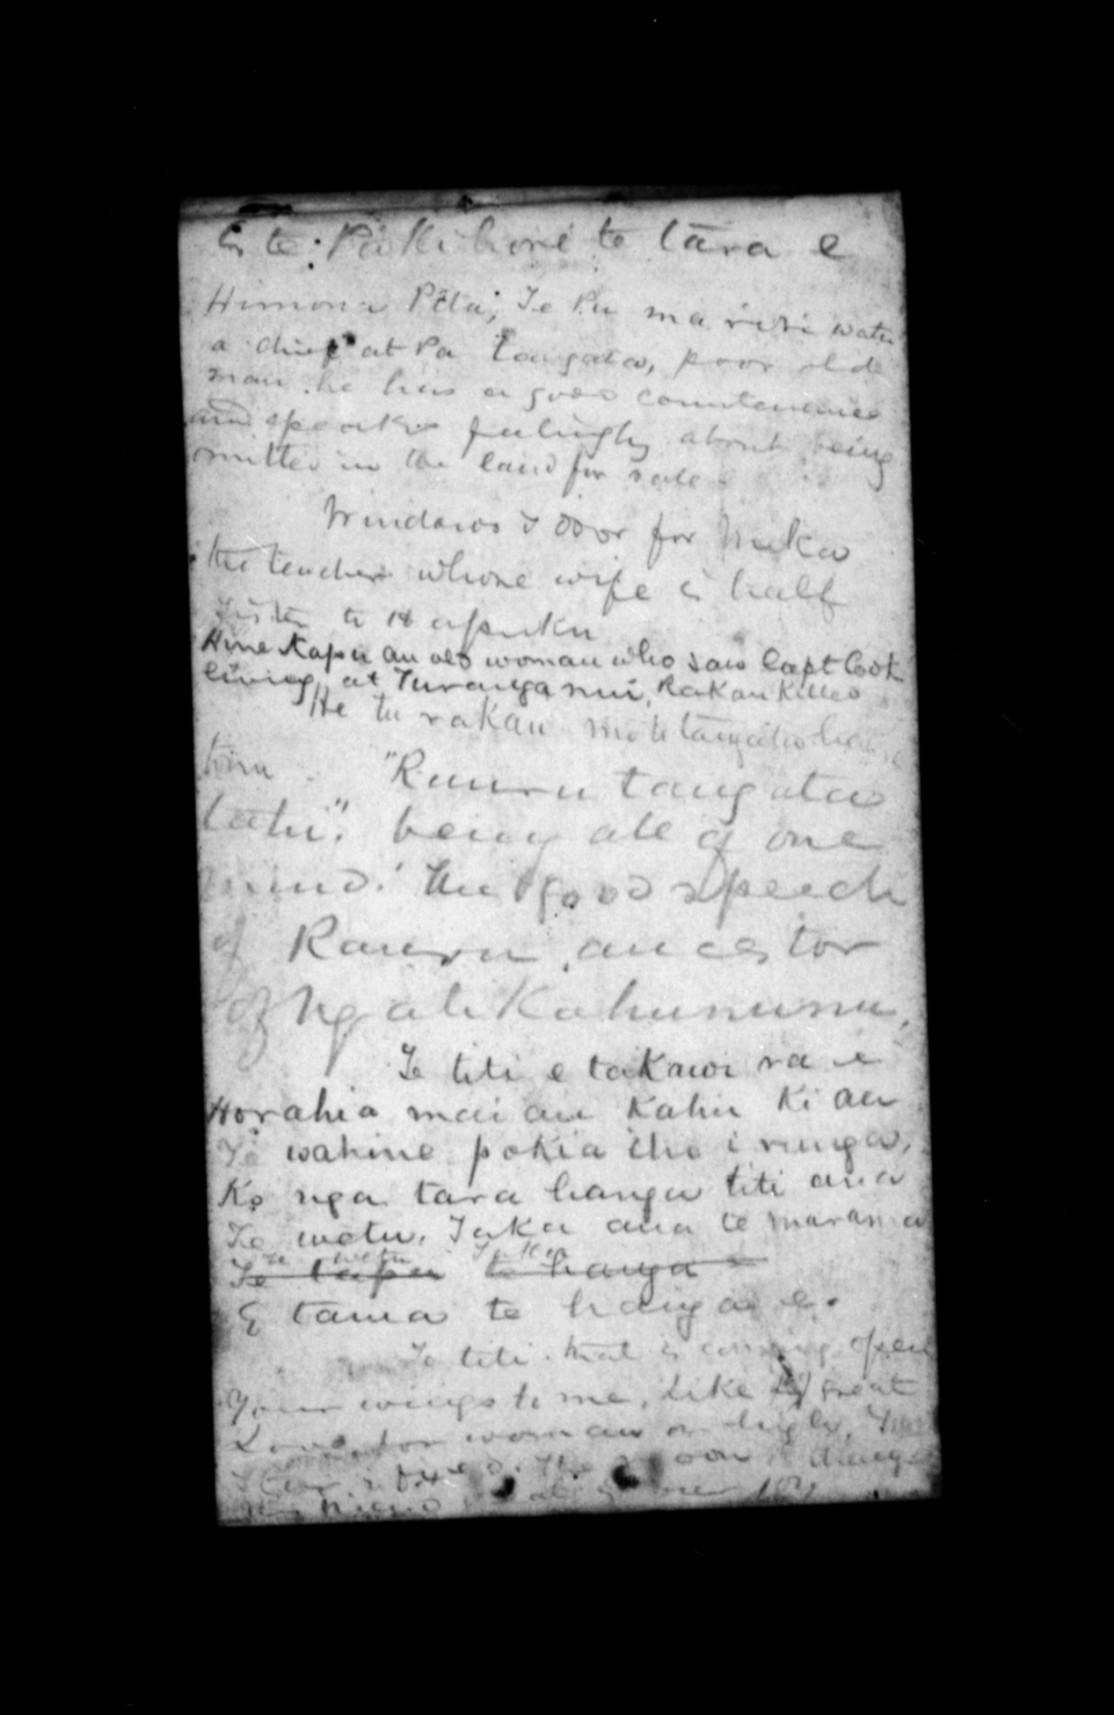 E te: Pakihoné te tāra e
Himona Pēta; Te Pu ma riri watu
a chief at Pa Tangata, poor old
man he has a good countenance
and speaks feelingly about being
in the land for sale
Windows & door for Meka
the teacher whose wife is half
Sister to Hapuku
Hine Kapu an old woman who saw Capt Cook
living at Turanga nui, Rakau killed
He tu rakau mo te tangata
"Rauru tangata
tahi". being all of one
mind. The good speech
of Rauru, ancestor
of Ngati Kahununu,
Te titi e takawi ra e
Horahia mai au Kahu Ki au
Te wahine pokia iho i runga,
Ko nga tara hanga titi ana
Te wetu. Taka ana te marama
Te wetu Taka
Te tapu te hanga
E tama te hanga e.
Te titi that is coming open
Your wings to me, like great
Love for woman on high,
Star is fixed. The moon change